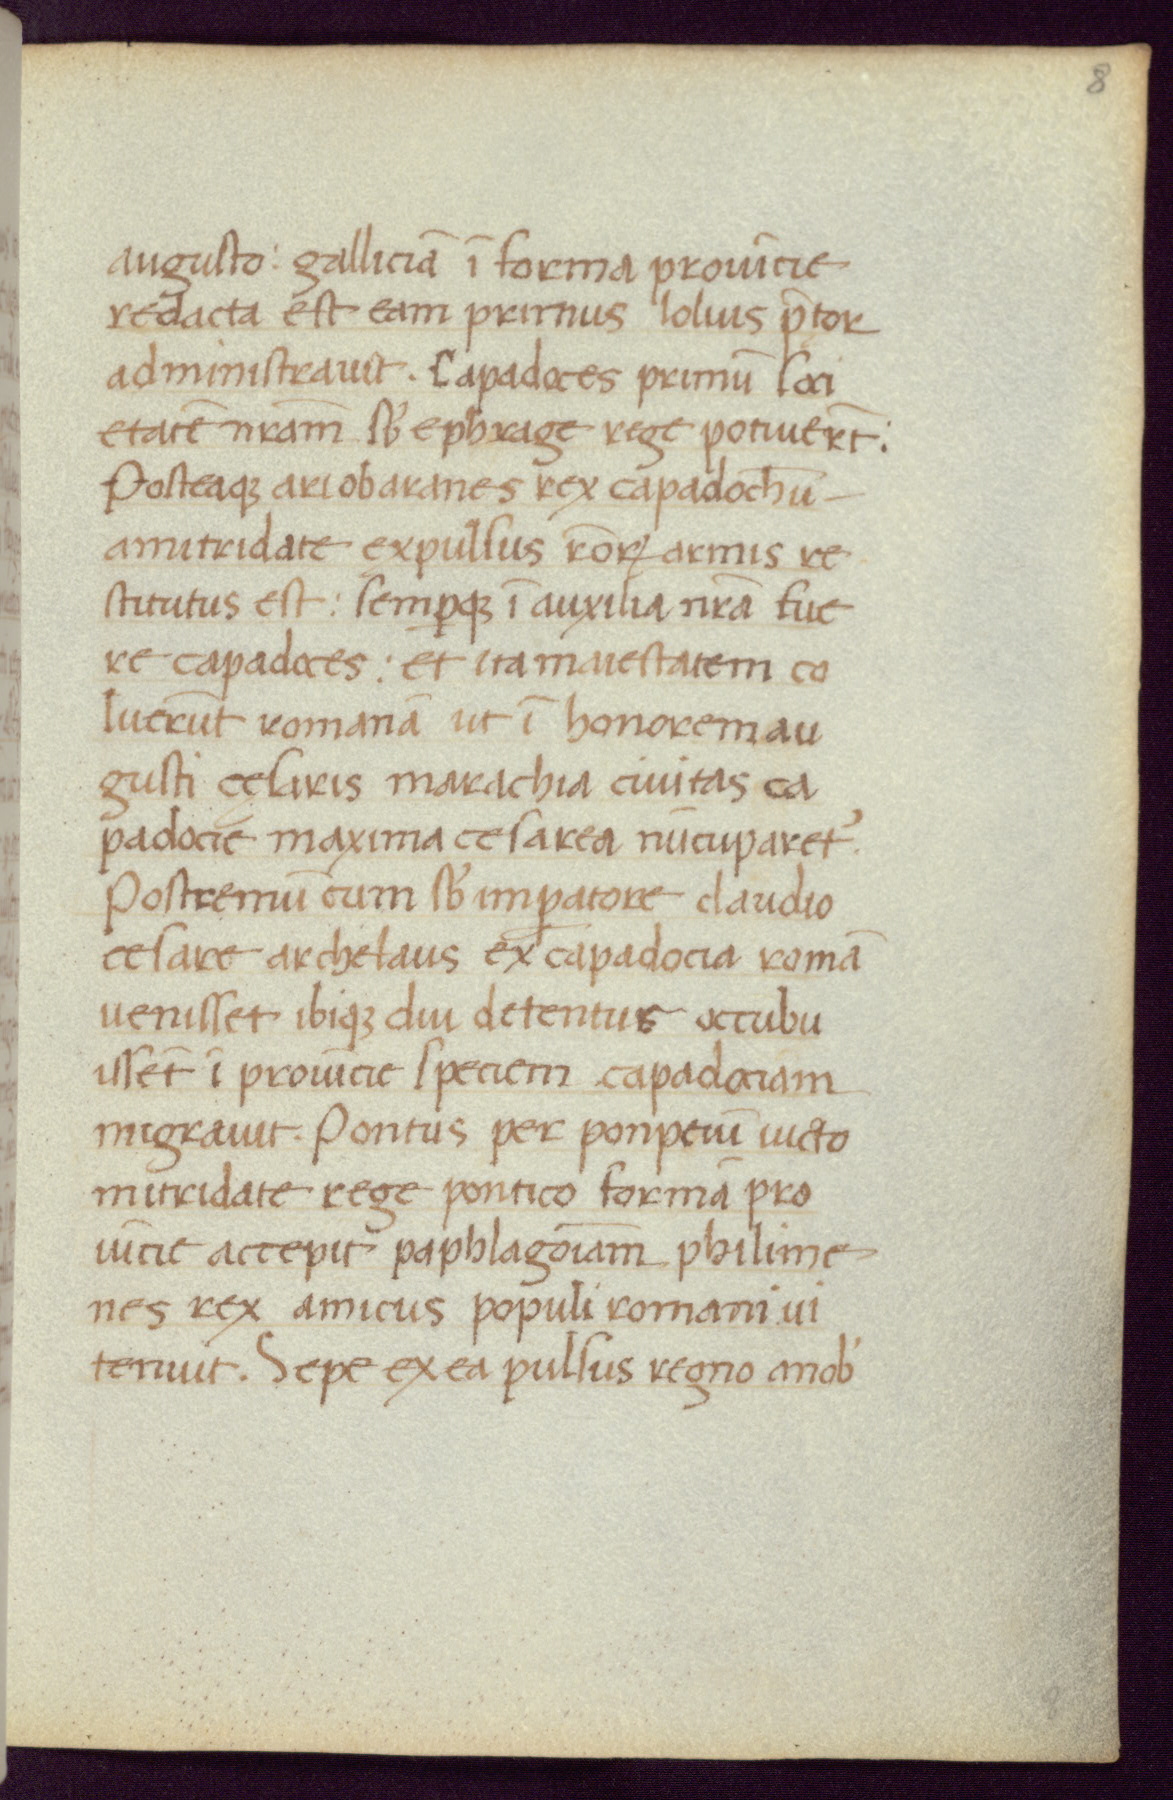 8
augusto: galliciā ī forma prouīcie
redacta est eam primus lolius p̄tor
administrauit. Capadoces primū soci
etatē nr̄am sb̓ ephrage rege potiuer̄t:
Posteaqꝫ ariobaranes rex capadochū
amitridate expulsus rōꝝ armis re
stitutus est: semꝑqꝫ ī auxilia nr̄a fue
re capadoces: et ita maiestatem co
luerūt romanā ut ī honorem au
gusti cesaris marachia ciuitas ca
padocie maxima cesarea nūcuparet᷒.
Postremū cum sb̓ imꝑatore claudio
cesare archelaus ex capadocia romā
uenisset ibiqꝫ diu detentus occubu
isset̄ ī prouīcie speciem capadociam
migrauit. Pontus per ponpeiū uicto
mitridate rege pontico formā pro
uīcie accepit paphlagōiam philime
nes rex amicus populi romani ui
tenuit. Sepe ex ea pulsus regno anob̓